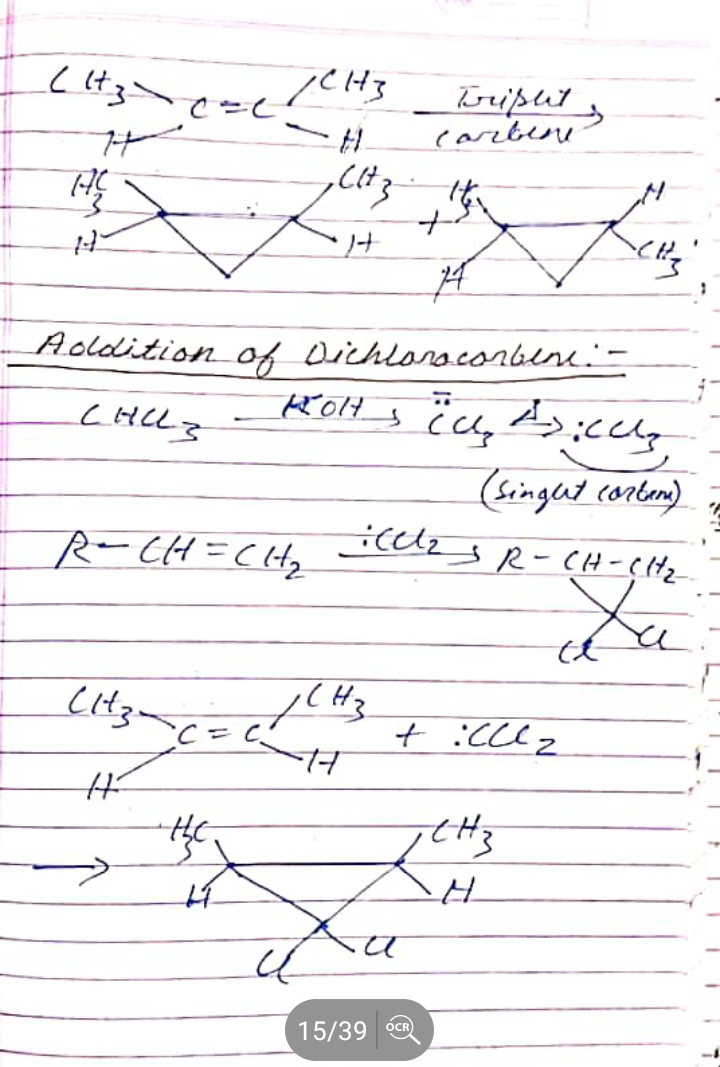 CH3 CH3
C=C Triplet
H H carbene
H3C CH3 + H3 H
H H H CH3
Addition of Dichlorocarbene:-
CHCl3 KOH → C̈Cl3 Δ → :CCl3
(Singlet carbene)
R-CH=CH2 :CCl2 → R-CH-CH2
Cl Cl
CH3 CH3
C=C + :CCl2
H H
→ H3C CH3
H H
Cl Cl
15/39 OCR